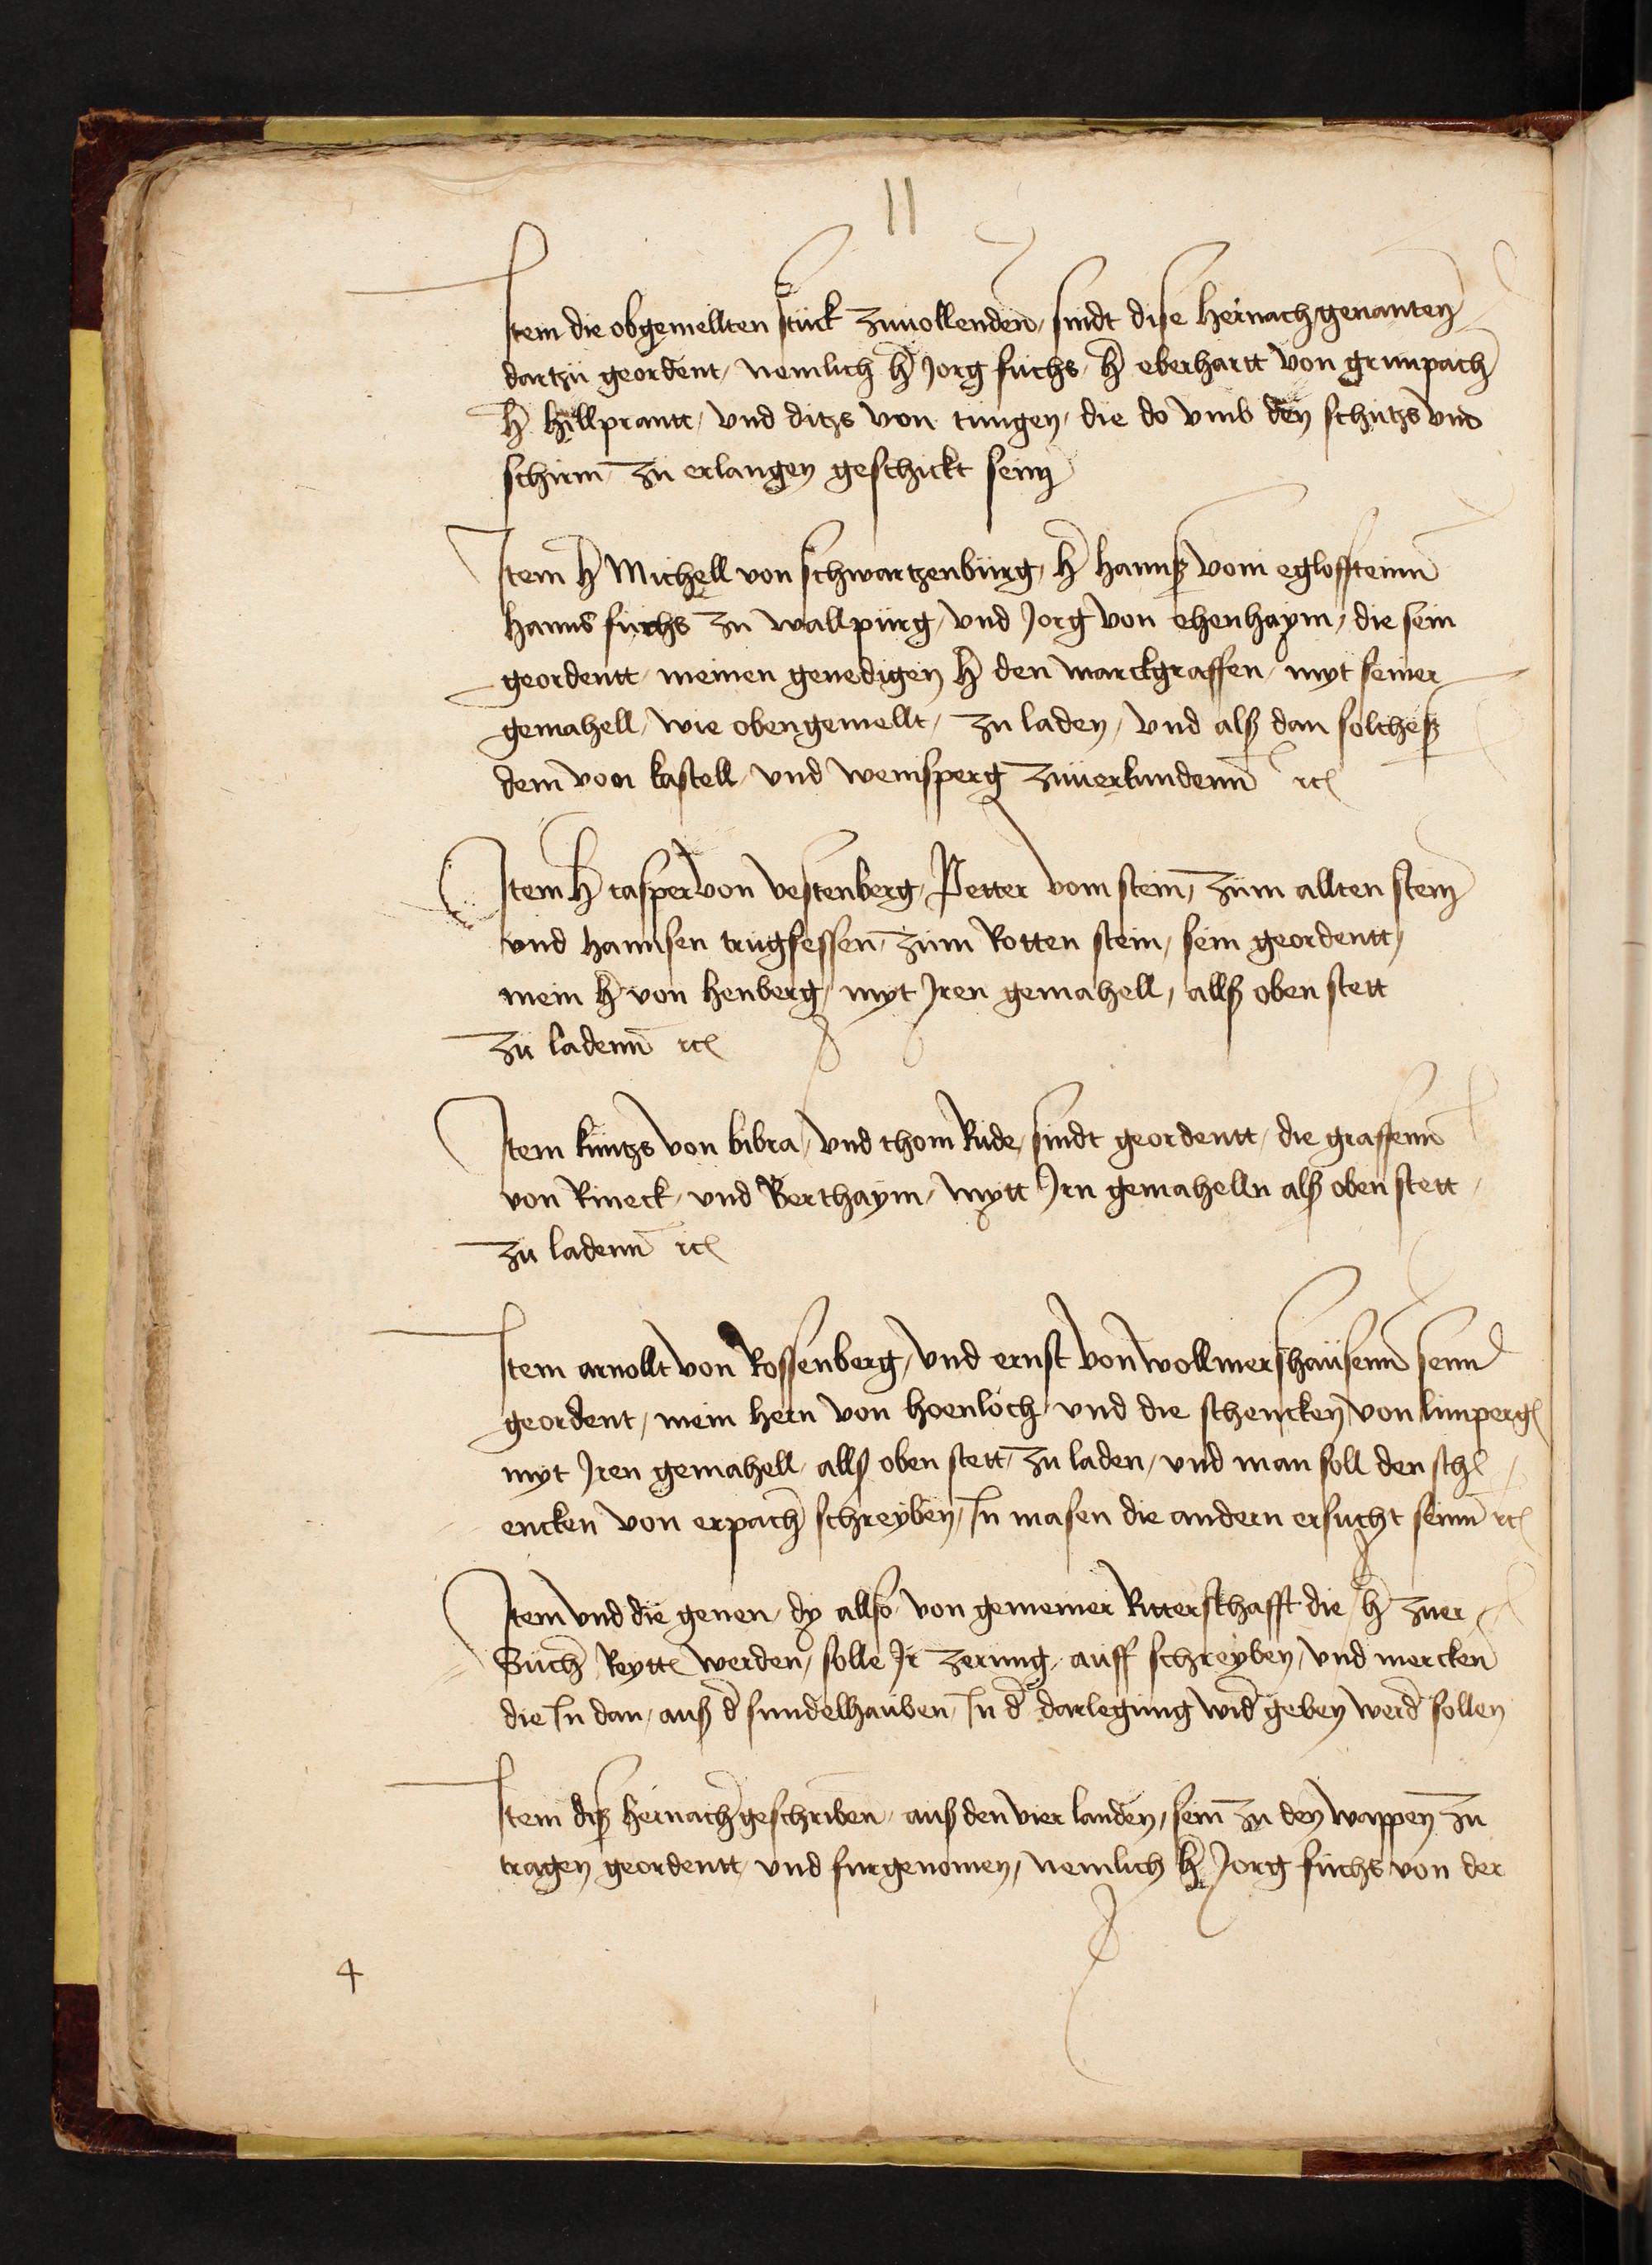 11
Item die obgemellten stuck zuuollenden / sindt dise hernach genanten
dartzu geordent / nemlich h Jorg fuchs / h eberhartt von grunpach
h hillprantt / vnd ditzs von tungen / die do vmb den schutzs vnd
schirm zu erlangen geschickt sein
Item h Michell von schwartzenburg / h hannß vom egloffsteinn
hanns fuchs zu wallpurg / vnd Jorg von ehenhaym / die sein
geordentt / meinen genedigen h den marckgraffen / myt seiner
gemahell / wie oben gemellt / zu laden / vnd alß dan solcheß
dem von kastell / vnd weinsperg zuuerkundenn ꝛc
Item h casper von vestenberg / Petter vom stein / zum allten stein
vnd hannsen trugsessen / zum Rotten stein / sein geordentt /
mein h von henberg / myt Jren gemahell / allß oben stett
zu ladenn ꝛc
Item kuntzs von bibra / vnd thom Rude / sindt geordentt / die graffenn
von Rineck / vnd Berthaym / mytt Jrn gemahelln alß oben stett /
zu ladenn ꝛc
Item arnollt von Rossenberg / vnd ernst von wollmershausenn senn
geordent / mein hern von hoenloch / vnd die schencken von limperg
myt Jren gemahell / allß oben stett / zu laden / vnd man soll den sch
encken von erpach schreyben / In masen die andern ersucht seinn ꝛc
Item vnd die genen / dy allso von gemeiner Ritterschafft die h zuer
Such Reytt werden / solle Jr zerung / auff schreyben / vnd mercken
die In dan / auß d sundelhauben / In d darlegung wid geben werd sollen
Item diß hernach geschriben / auß den vier landen / sein zu den wappen zu
tragen geordentt / vnd furgenomen / nemlich h Jorg fuchs von der
4